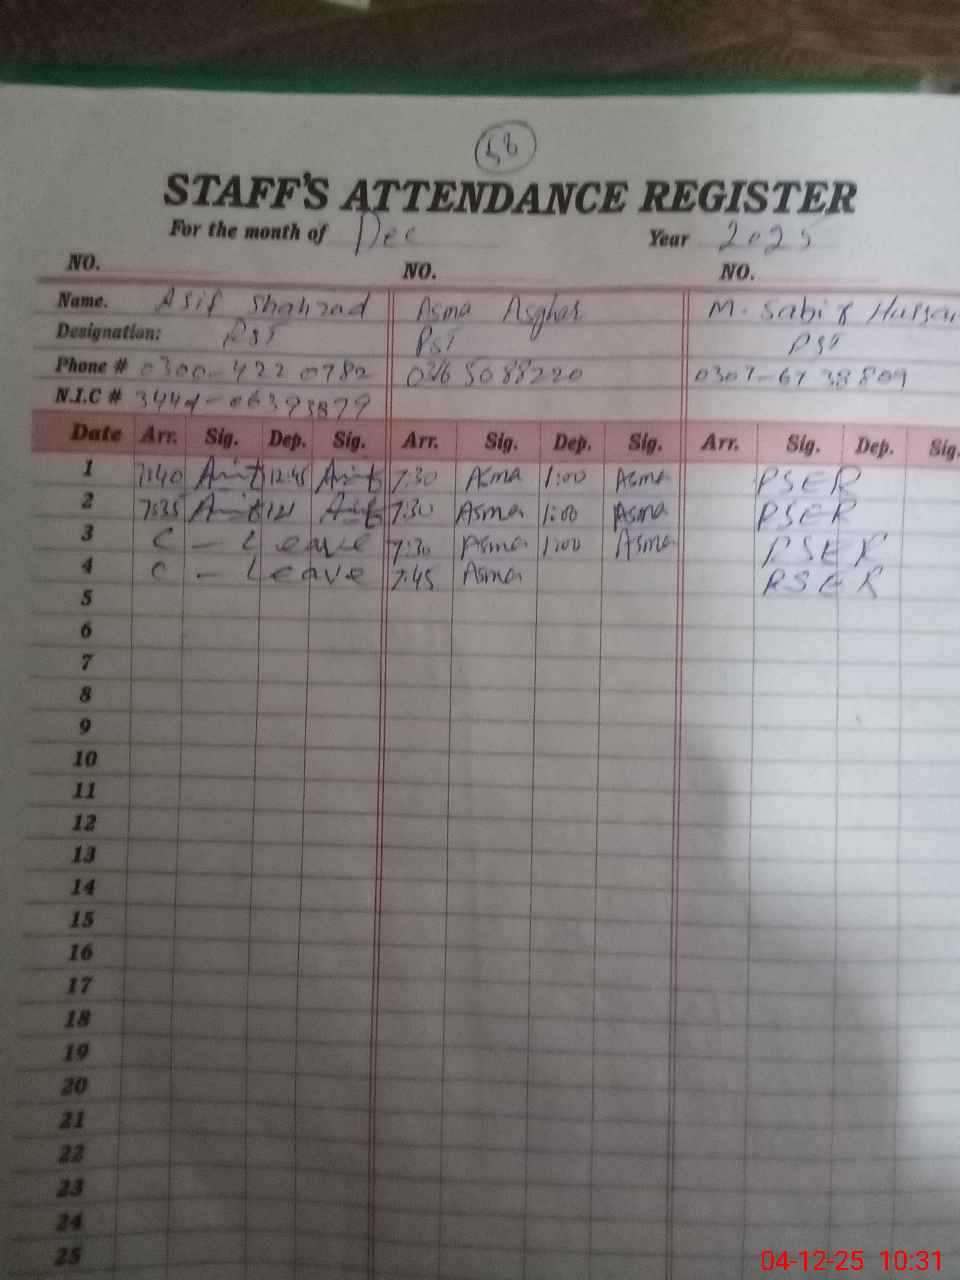 58
STAFF'S ATTENDANCE REGISTER
For the month of Dec Year 2025
NO. NO. NO.
Name. Asif Shahzad Asma Asghar M. Sabir
Designation: PST PST PST
Phone # 0300-4220782 5088220 0307-6738809
N.I.C #
Date Arr. Sig. Dep. Sig. Arr. Sig. Dep. Sig. Arr. Sig. Dep. Sig.
1 7:40 12:45 7:30 Asma 1:00 Asma PSER
2 7:35 7:30 Asma 1:00 Asma PSER
3 C - Leave 7:30 Asma 1:00 Asma PSER
4 C - Leave 7:45 Asma PSER
5
6
7
8
9
10
11
12
13
14
15
16
17
18
19
20
21
22
23
24
25
04-12-25 10:31